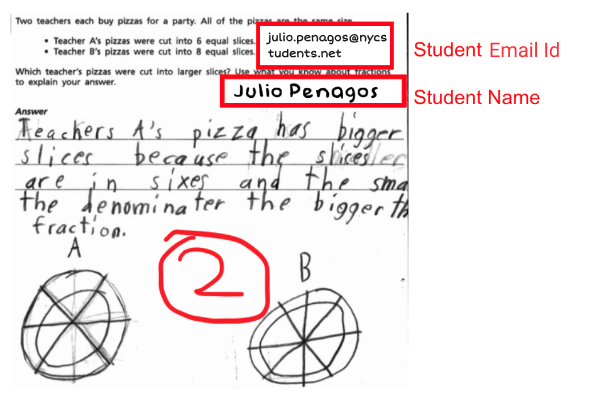 Two teachers each buy pizzas for a party. All of the pizzas are the same size.
• Teacher A's pizzas were cut into 6 equal slices.
• Teacher B's pizzas were cut into 8 equal slices.
julio.penagos@nycs
tudents.net
Student Email Id
Which teacher's pizzas were cut into larger slices? Use what you know about fractions
to explain your answer.
Julio Penagos
Student Name
Answer
Teachers A's pizza has bigger
slices because the slices
are in sixes and the sma
the denominater the bigger th
fraction.
A
2
B